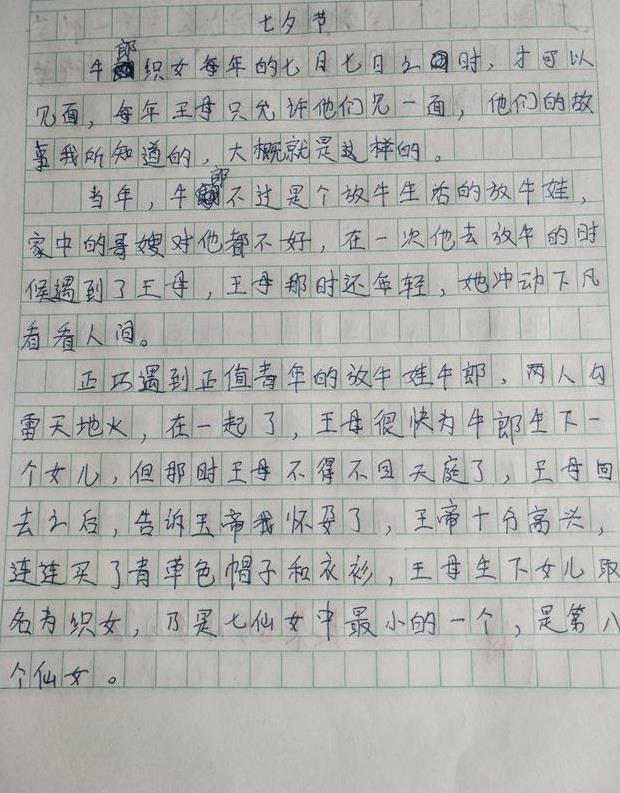 七夕节
牛郎织女每年的七月七日之时，才可以
见面，每年王母只允许他们见一面，他们的故
事我所知道的，大概就是这样的。
当年，牛郎不过是个放牛生活的放牛娃，
家中的哥嫂对他都不好，在一次他去放牛的时
候遇到了王母，王母那时还年轻，她冲动下凡
看看人间。
正巧遇到正值青年的放牛娃牛郎，两人勾
雷天地火，在一起了，王母很快为牛郎生下一
个女儿，但那时王母不得不回天庭了，王母回
去之后，告诉玉帝我怀孕了，王帝十分高兴，
连连买了青草色帽子和衣衫，王母生下女儿取
名为织女，乃是七仙女中最小的一个，是第八
个仙女。